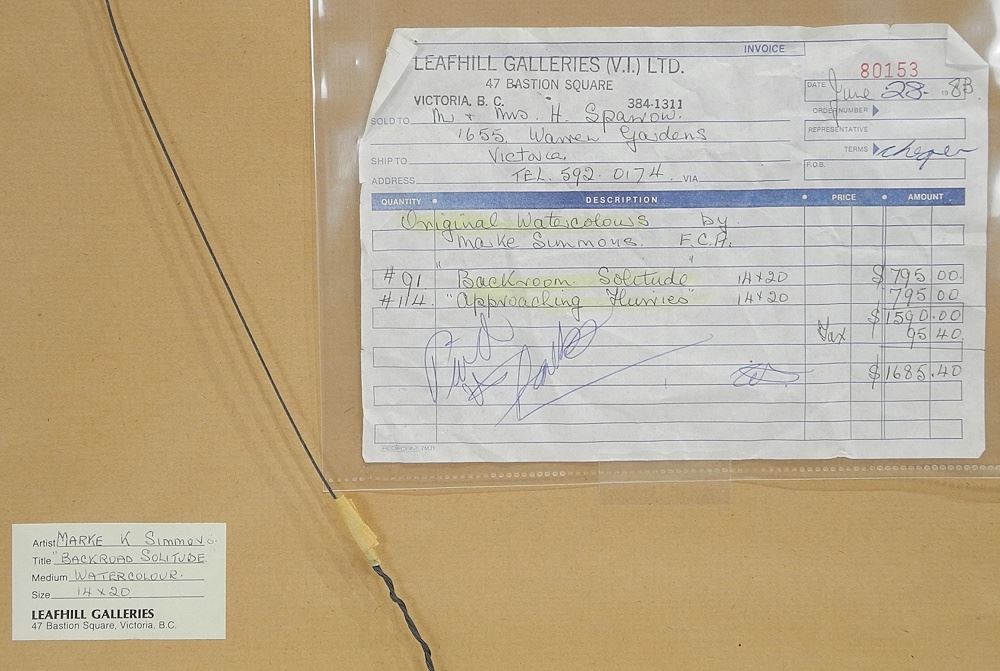 INVOICE
LEAFHILL GALLERIES (V.I.) LTD.
47 BASTION SQUARE
VICTORIA, B. C. 384-1311
80153
DATE June 28 1983
ORDER NUMBER
REPRESENTATIVE
TERMS
F.O.B.
SOLD TO Mr + Mrs. H. Sparrow.
1655 Warren Gardens
SHIP TO Victoria
ADDRESS TEL. 592-0174 VIA
QUANTITY DESCRIPTION PRICE AMOUNT
Original Watercolours by
Marke Simmons. F.C.A.
#91 "Backroom Solitude" 14x20 $795.00
#114. "Approaching Flurries" 14x20 795 00
$1590.00
Tax 95.40
Paid
$1685.40
Artist MARKE K Simmons.
Title "BACKROAD SOLITUDE"
Medium WATERCOLOUR.
Size 14x20
LEAFHILL GALLERIES
47 Bastion Square, Victoria, B.C.